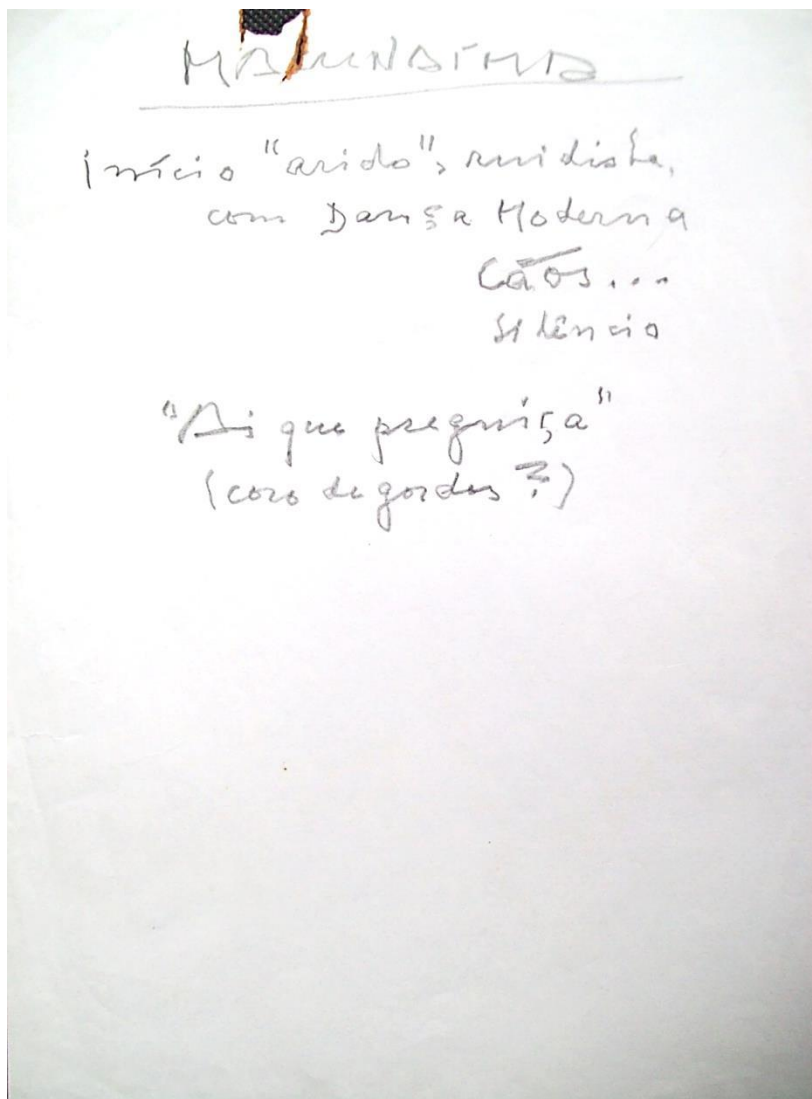 MACUNAÍMA
Início "arido", ruidista,
com Dança Moderna
Cáos...
Silêncio
"Ai que preguiça"
(coro de gordos ?)